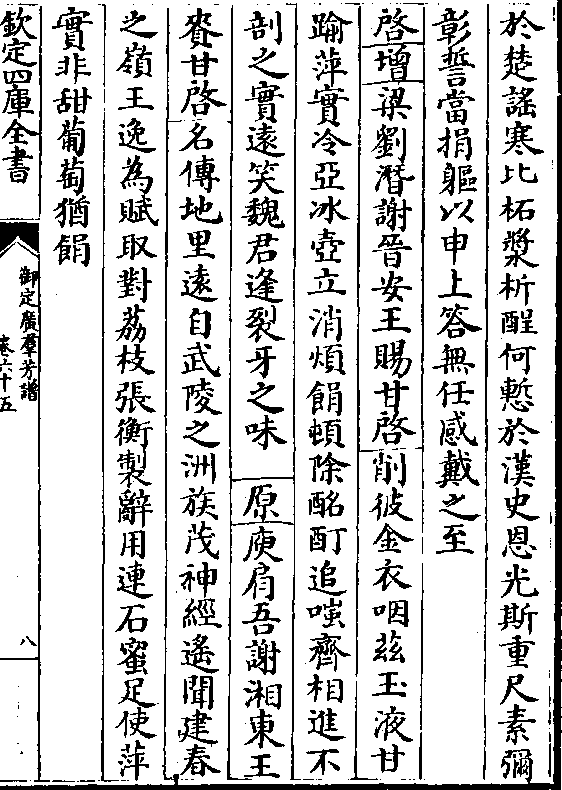 於楚謠寒比柘漿析酲何慙於漢史恩光斯重尺素彌
彰誓當捐軀以申上答無任感戴之至
啓增梁劉潛謝晉安王賜甘啓削彼金衣咽兹玉液甘
踰萍實冷亞冰壺立消煩餇頓除酩酊追嗤齊相進不
剖之實遠笑魏君逢裂牙之味 原庾肩吾謝湘東王
賚甘啓名傳地里遠自武陵之洲族茂神經遙聞建春
之嶺王逸為賦取對荔枝張衡製辭用連石蜜足使萍
實非甜葡萄猶餇
欽定四庫全書
御定廣羣芳譜
卷六十五
八